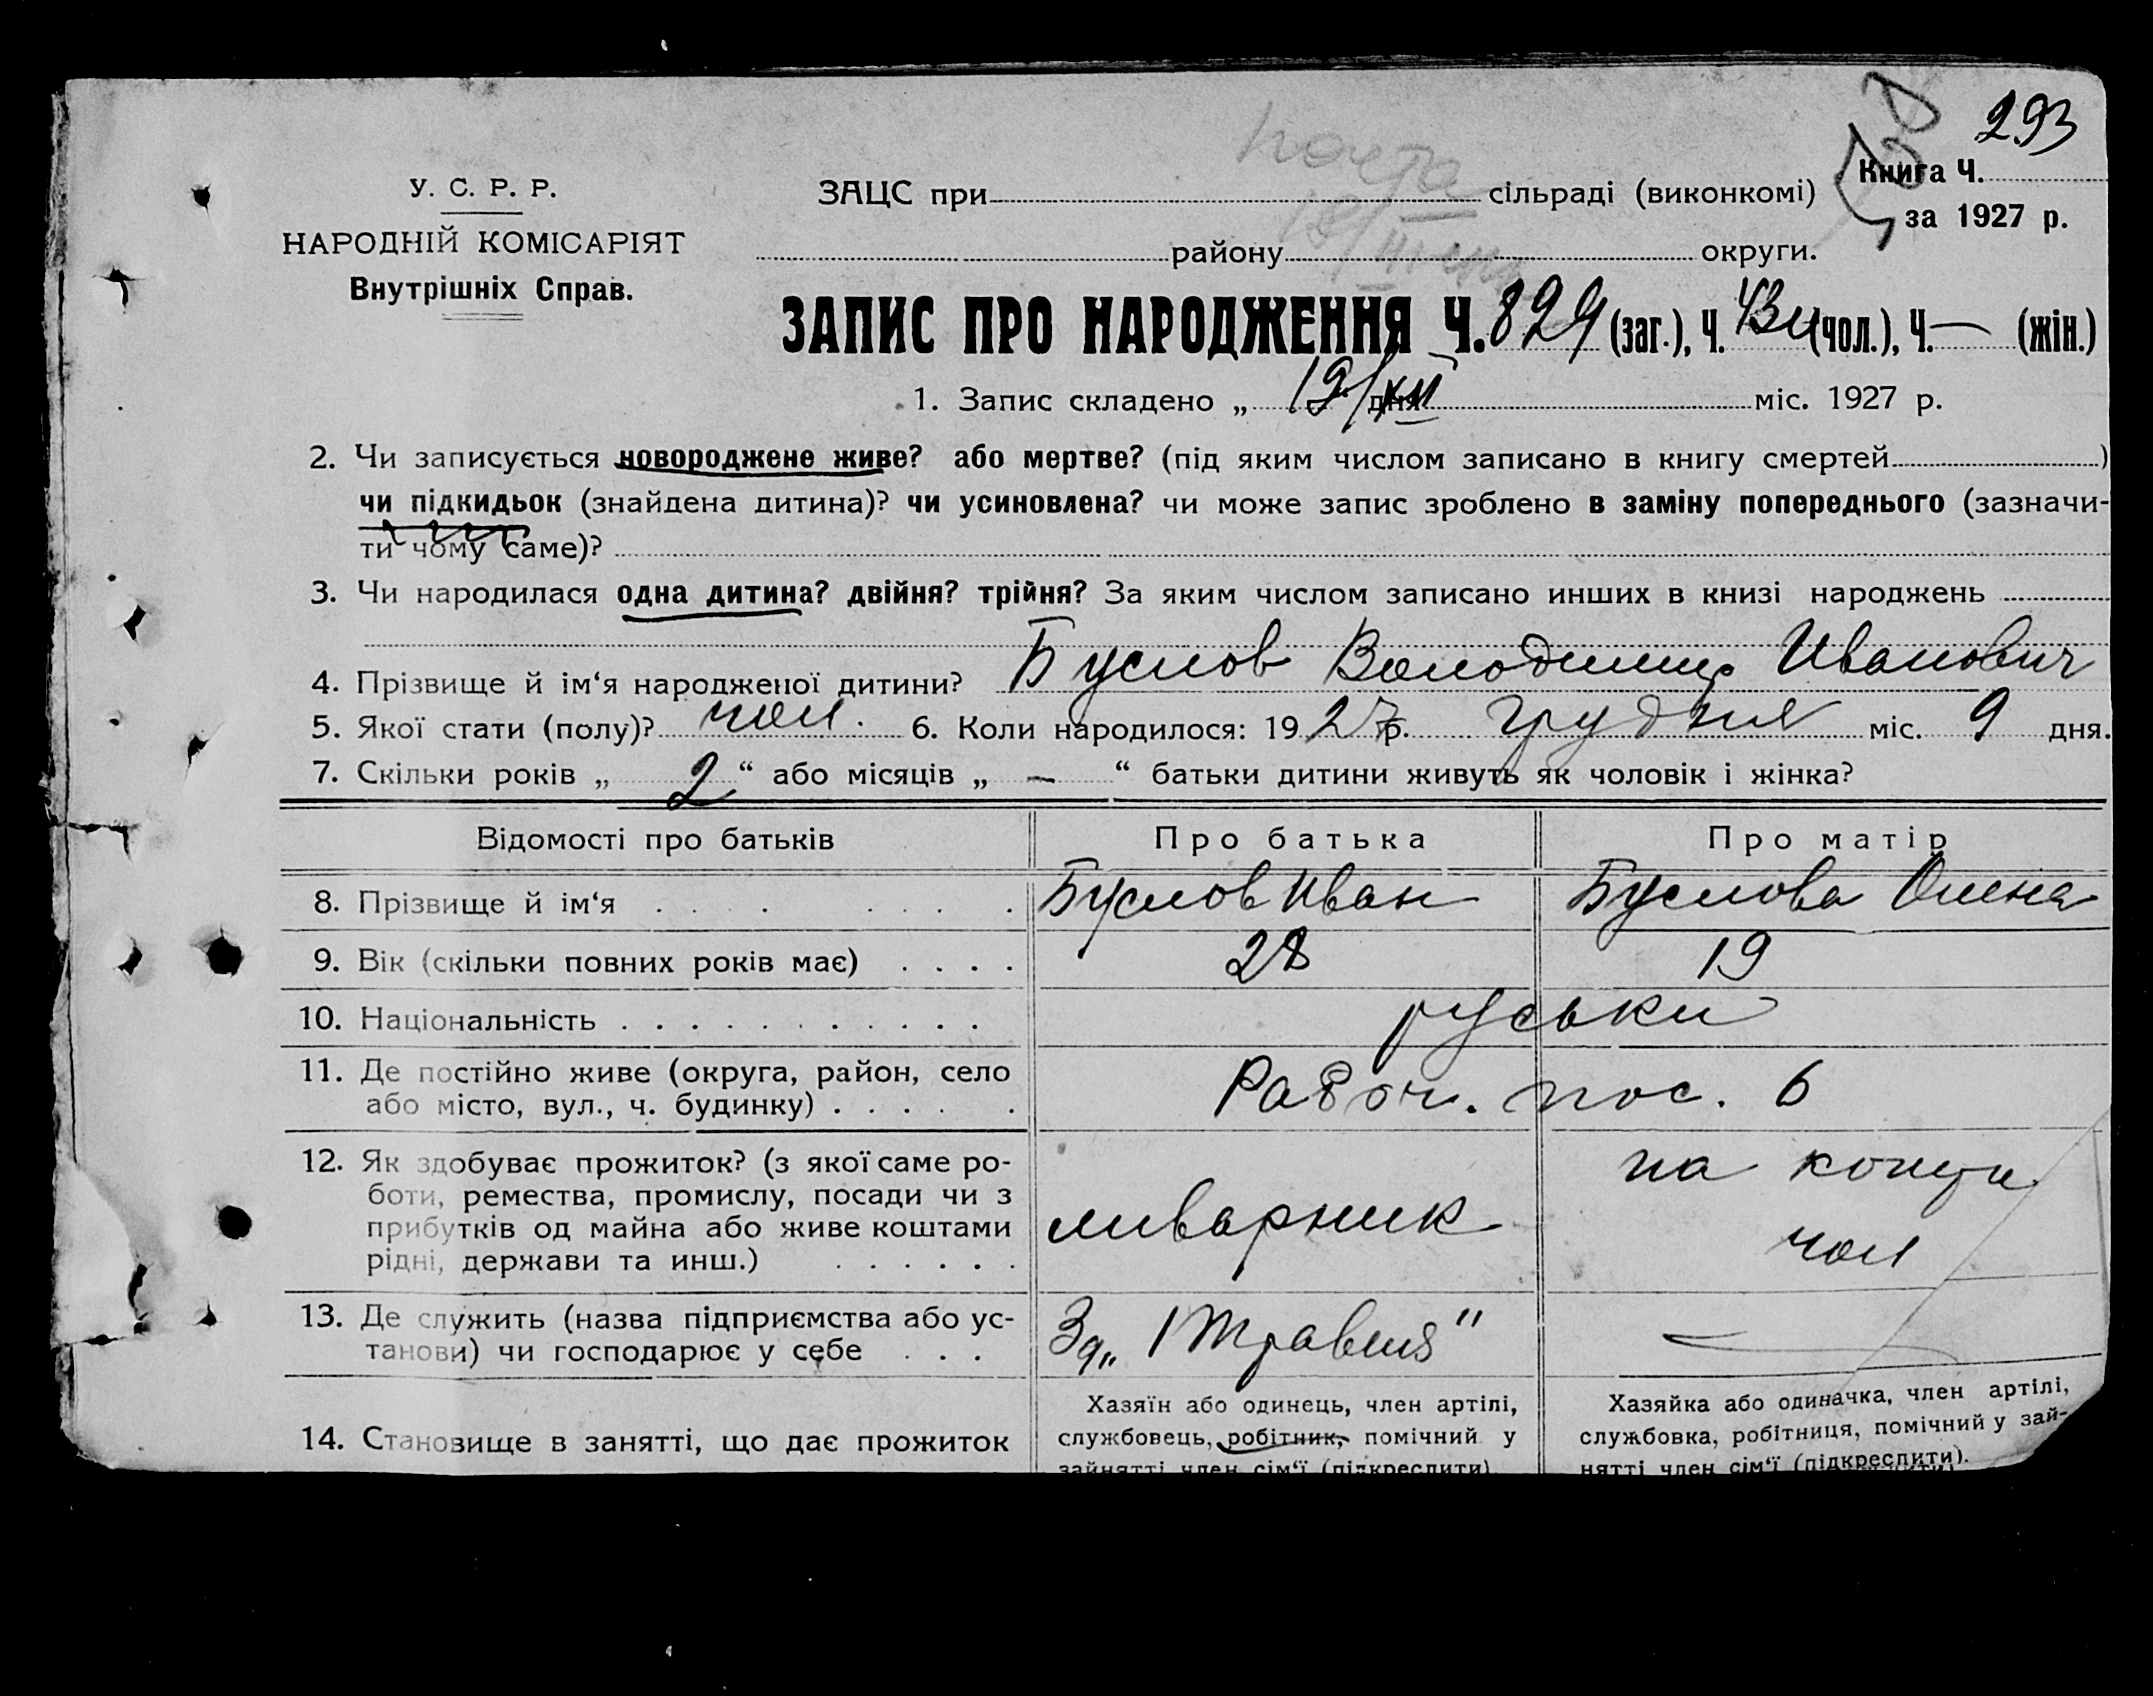 293
Книга Ч.
за 1927 р.
почта
У. С. Р. Р.
НАРОДНІЙ КОМІСАРІЯТ
Внутрішніх Справ.
ЗАЦС при сільраді (виконкомі)
району округи.
ЗАПИС ПРО НАРОДЖЕННЯ Ч. 829 (заг.), Ч. (чол.), Ч. — (жін.)
1. Запис складено „ 19/XII дня міс. 1927 р.
2. Чи записується новороджене живе? або мертве? (під яким числом записано в книгу смертей )
чи підкидьок (знайдена дитина)? чи усиновлена? чи може запис зроблено в заміну попереднього (зазначи-
ти чому саме)?
3. Чи народилася одна дитина? двійня? трійня? За яким числом записано инших в книзі народжень
4. Прізвище й ім‘я народженої дитини? Буслов Володимир Иванович
5. Якої стати (полу)? чол. 6. Коли народилося: 1927 р. грудня міс. 9 дня.
7. Скільки років „ 2 “ або місяців „ — “ батьки дитини живуть як чоловік і жінка?
Відомості про батьків Про батька Про матір
8. Прізвище й ім‘я Буслов Иван Буслова Олена
9. Вік (скільки повних років має) 28 19
10. Національність руськи
11. Де постійно живе (округа, район, село
або місто, вул., ч. будинку) Рабоч. пос. 6
12. Як здобуває прожиток? (з якої саме ро-
боти, ремества, промислу, посади чи з
прибутків од майна або живе коштами
рідні, держави та инш.) ливарник на кошти чол
13. Де служить (назва підприємства або ус-
танови) чи господарює у себе Зд „1 Травня" —
14. Становище в занятті, що дає прожиток
Хазяїн або одинець, член артілі,
службовець, робітник, помічний у
зайнятті член сім‘ї (підкреслити)
Хазяйка або одиначка, член артілі,
службовка, робітниця, помічний у зай-
нятті член сім‘ї (підкреслити).